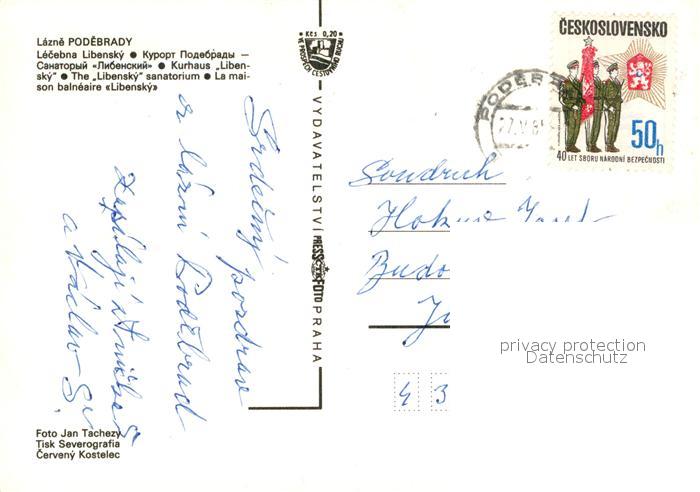 Lázně PODĚBRADY
Léčebna Libenský ● Курорт Подебрады —
Санаторый «Либенский» ● Kurhaus „Liben-
ský" ● The „Libenský" sanatorium ● La mai-
son balnéaire «Libenský»
Kčs 0,20
VE PROSPĚCH CESTOVNÍHO RUCHU
VYDAVATELSTVÍ PRESSFOTO PRAHA
ČESKOSLOVENSKO
50h
40 LET SBORU NÁRODNÍ BEZPEČNOSTI
PODĚBR
27.V.8
Srdečný pozdrav
z lázní Poděbrad
zasílají
a Václav
Soudruh
Budo
4 3
privacy protection
Datenschutz
Foto Jan Tachezy
Tisk Severografia
Červený Kostelec